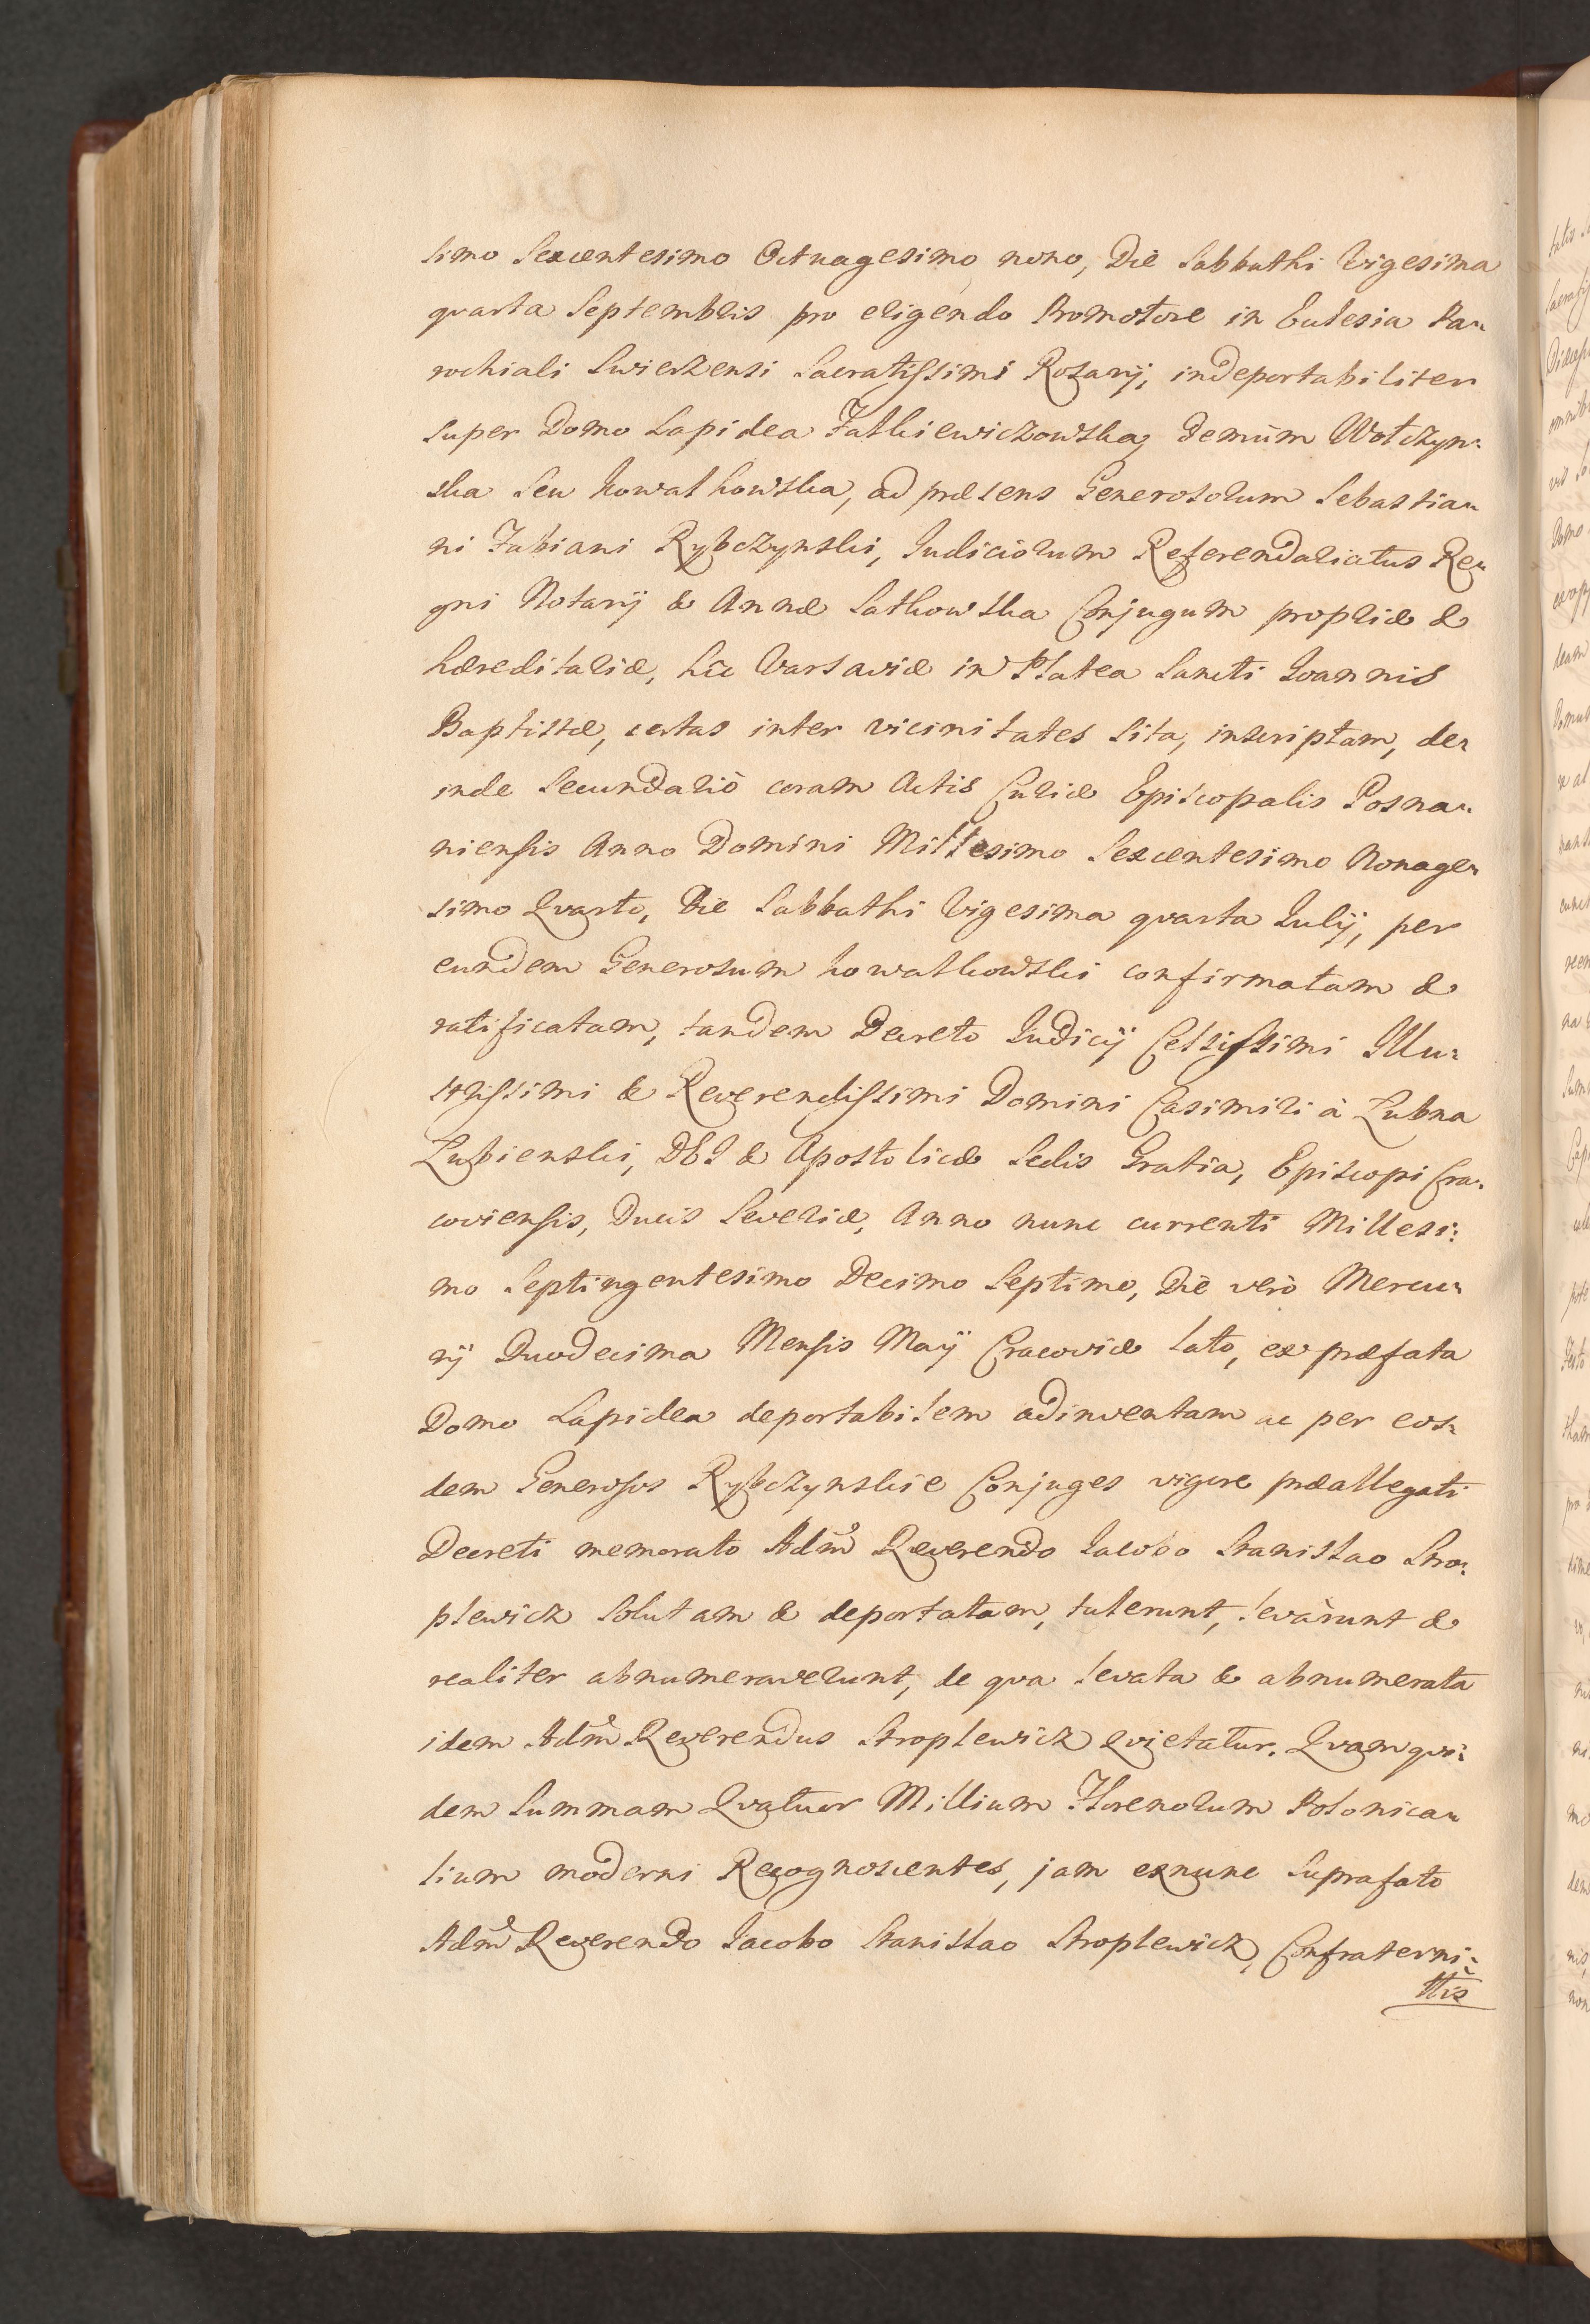 simo Sexcentesimo Octuagesimo nono, Die Sabbathi Vigesima
quarta Septembris pro eligendo Promotore in Ecclesia Pa-
rochiali Swierzensi Sacratissimi Rozarij, indeportabiliter
super Domo Lapidea Fatkiewiczowska, demùm Wołczyn-
ska seu Kowalkowska, ad præsens Generosorum Sebastia-
ni Fabiani Rybczynski, Iudiciorum Referendariatus Re-
gni Notarij & Annæ Satkowska Conjugum propriæ &
hæreditariæ, hîc Varsaviæ in Platea Sancti Ioannis
Baptistæ, certas inter vicinitates sita, inscriptam, de-
inde Secundariò coram Actis Curiæ Episcopalis Posna-
niensis Anno Domini Millesimo Sexcentesimo Nonage-
simo Quarto, Die Sabbathi Vigesima quarta Iulij, per
eundem Generosum Kowalkowski confirmatam &
ratificatam, tandem Decreto Iudicij Celsissimi Illu-
strissimi & Reverendissimi Domini Casimiri à Łubna
Łubienski, DEI & Apostolicæ Sedis Gratia, Episcopi Cra-
coviensis, Ducis Severiæ, Anno nunc currenti Millesi-
mo Septingentesimo Decimo Septimo, Die verò Mercu-
rij Duodecima Mensis Maij Cracoviæ lato, ex præfata
Domo Lapidea deportabilem adinventam ac per eos-
dem Generosos Rybczynskie Conjuges vigore præallegati
Decreti memorato Adm̃ Reverendo Iacobo Stanislao Stro-
plewicz solutam & deportatam, tulerunt, levàrunt &
realiter abnumeraverunt, de qua levata & abnumerata
idem Adm̃ Reverendus Stroplewicz quietatur. Quam qui-
dem Summam Quatuor Millium Florenorum Polonica-
lium moderni Recognoscentes, jam exnunc suprafato
Adm̃ Reverendo Iacobo Stanislao Stroplewicz, Confraterni-
ttis